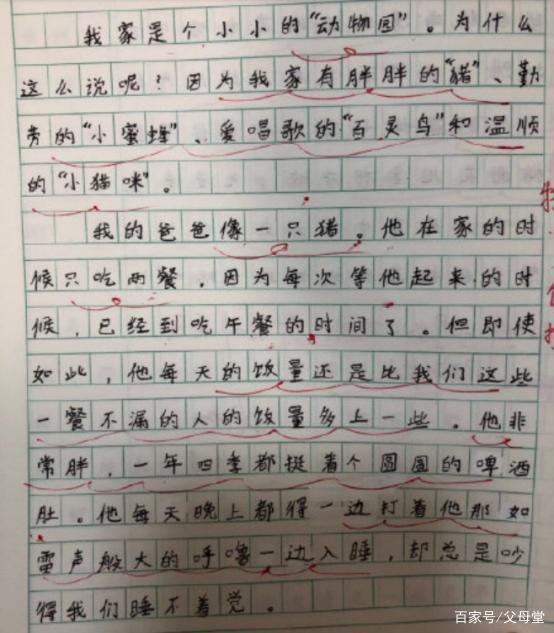 我家是个小小的“动物园”。为什么
这么说呢？因为我家有胖胖的“猪”、勤
劳的“小蜜蜂”、爱唱歌的“百灵鸟”和温顺
的“小猫咪”。
我的爸爸像一只猪。他在家的时
候只吃两餐，因为每次等他起来的时
候，已经到吃午餐的时间了。但即使
如此，他每天的饭量还是比我们这些
一餐不漏的人的饭量多上一些。他非
常胖，一年四季都挺着个圆圆的啤酒
肚。他每天晚上都得一边打着他那如
雷声般大的呼噜一边入睡，却总是吵
得我们睡不着觉。
百家号/父母堂